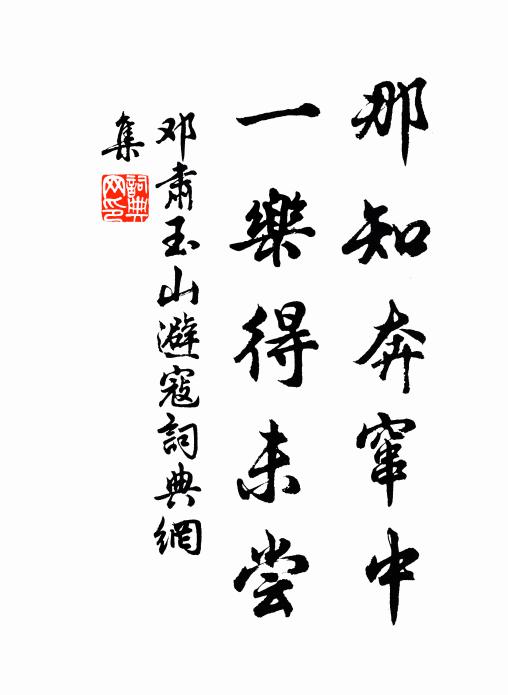 那知奔窜中
一樂得未尝
邓肅玉山避寇詞典網
集
詞典網印